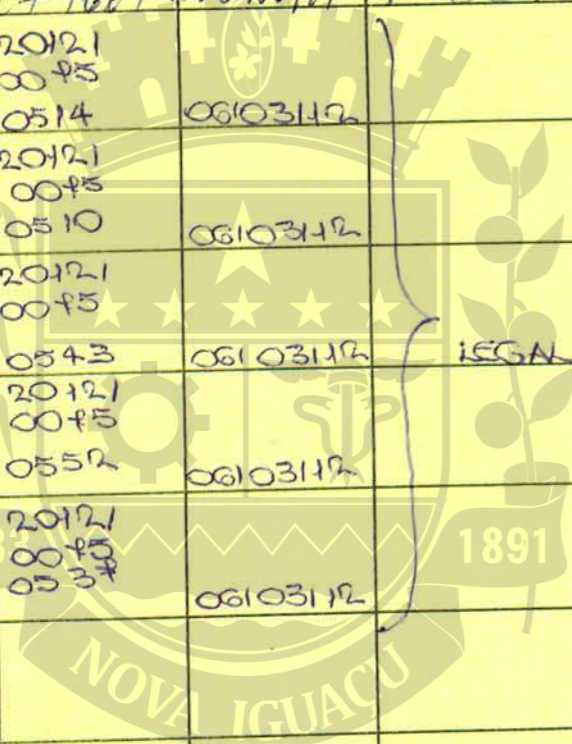 2012/
0075
0514 06/03/12
2012/
0075
0510 06/03/12
2012/
0075
0543 06/03/12
LEGAL
2012/
0075
0552 06/03/12
2012/
0075
0537 06/03/12
1891
NOVA IGUAÇU